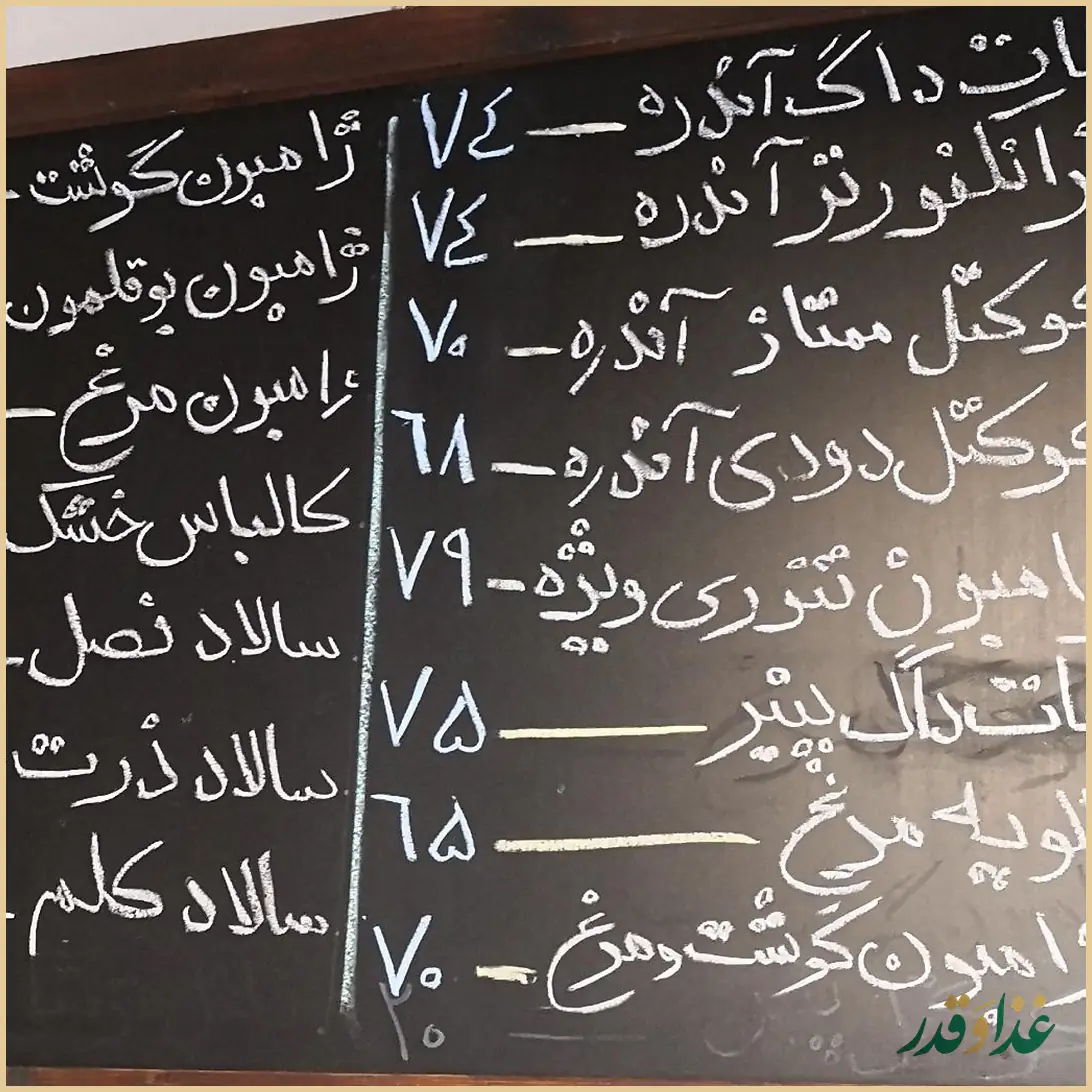 ات داگ آندره — ٧٤
رانکفورتر آندره — ٧٤
کوکتل ممتاز آندره — ٧٠
کوکتل دودی آندره — ٦٨
امبون تنوری ویژه — ٧٩
ات داگ پنیر — ٧۵
لویه مرغ — ٦۵
ژامبون گوشت و مرغ — ٧٠
٣٠
ژامبون گوشت -
ژامبون بوقلمون
ژامبون مرغ —
کالباس خشک
سالاد فصل -
سالاد ذرت
سالاد کلم -
غذا و قدر